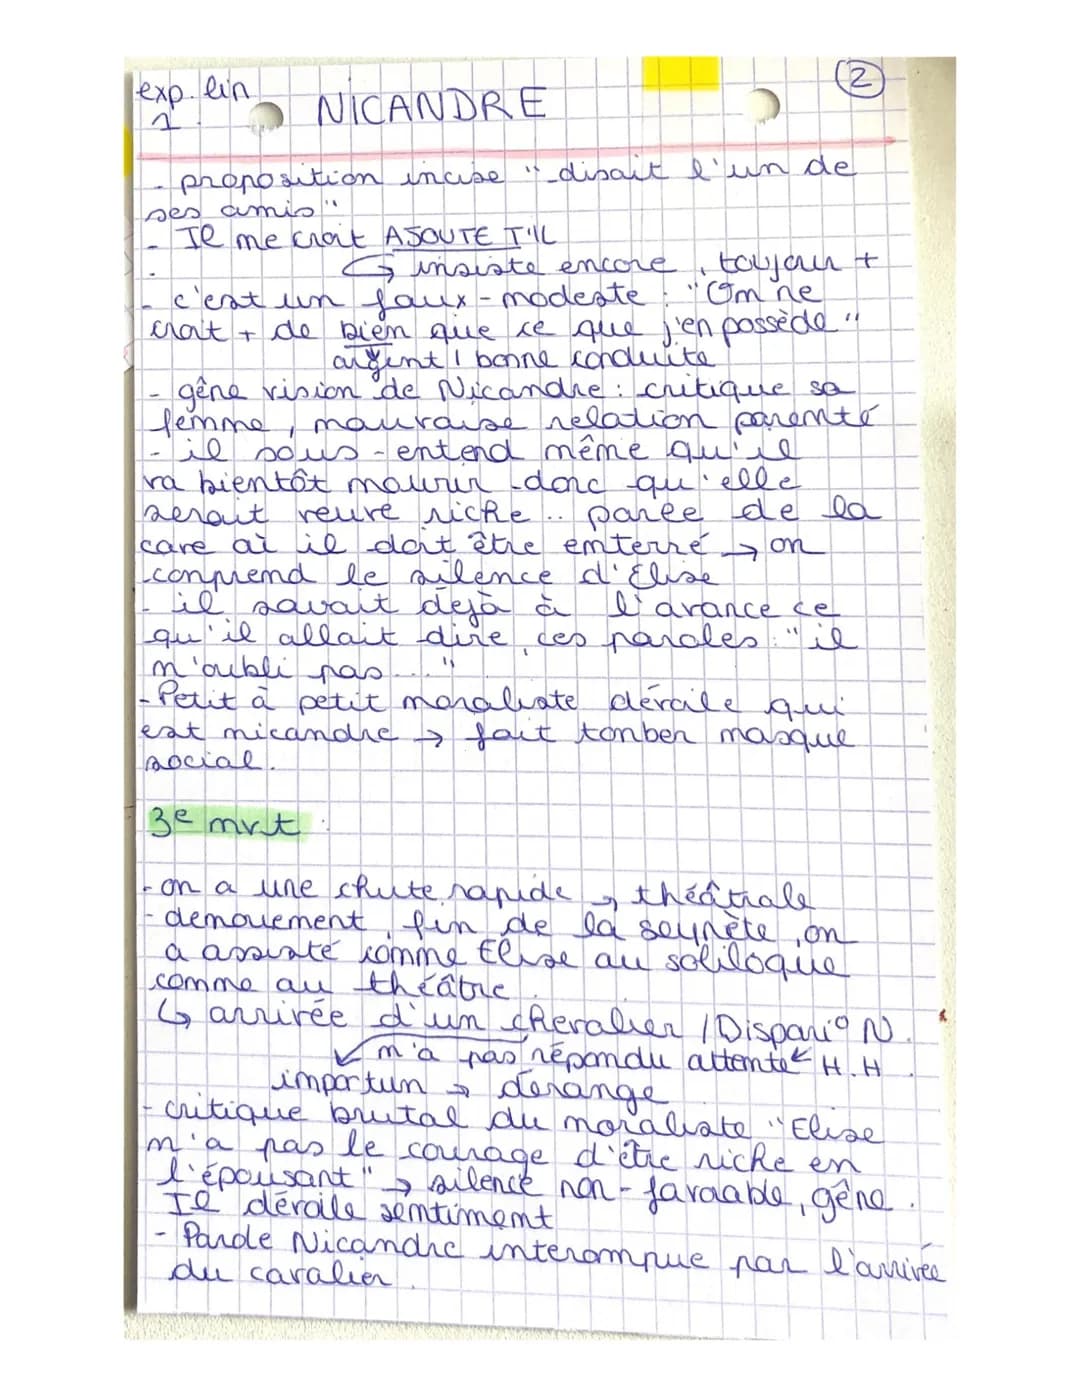 exp. lin
1.
NICANDRE
2
- proposition incise " disait l'un de
ses amis"
- Il me croit AJOUTE T'IL
↳ insiste encore, toujour +
- c'est un faux-modeste : "On ne
croit + de bien que ce que j'en possède"
argent / bonne conduite
- gêne vision de Nicandre : critique sa
femme, mauvaise relation parenté
- il sous-entend même qu'il
va bientôt mourir donc qu'elle
serait veuve riche .. parée de la
cave où il doit être enterré → on
comprend le silence d'Elise
- il savait déjà à l'avance ce
qu'il allait dire, ces paroles : "il
n'oubli pas..."
- Petit à petit moraliste dévoile qui
est nicandre → fait tonber masque
social.
3e mvt :
- on a une chute rapide → théâtrale
- denouement, fin de la seynète, on
a assisté comme Elise au soliloque
comme au théâtre.
↳ arrivée d'un chevalier / Dispario N.
n'a pas répondu attente H.H.
importun → dérange
- critique brutal du moraliste "Elise
n'a pas le courage d'être riche en
l'épousant" → silence non-favorable, gêne.
Il dévoile sentiment
- Parole Nicandre interompue par l'arrivée
du cavalier.